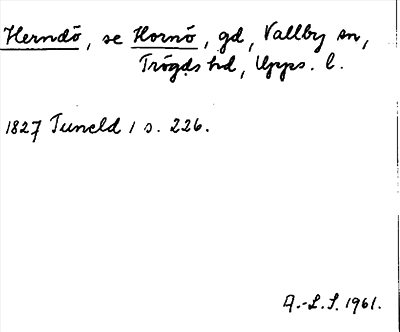 Herndö, se Hornö, gd, Vallby sn,
Trögds hd, Upps. l.
1827 Tuneld 1 s. 226.
A.-L.S. 1961.